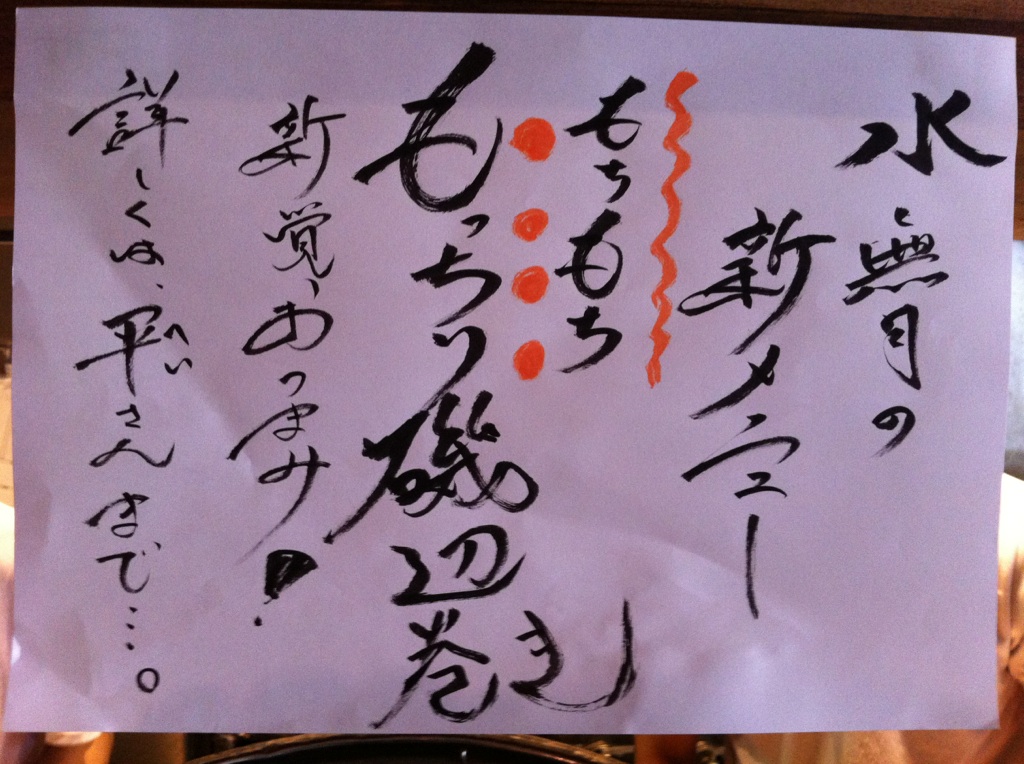 水無月の
新メニュー
もちもち
もっちり磯辺巻き
新覚、おつまみ!
詳しくは、平さんまで…。
へい